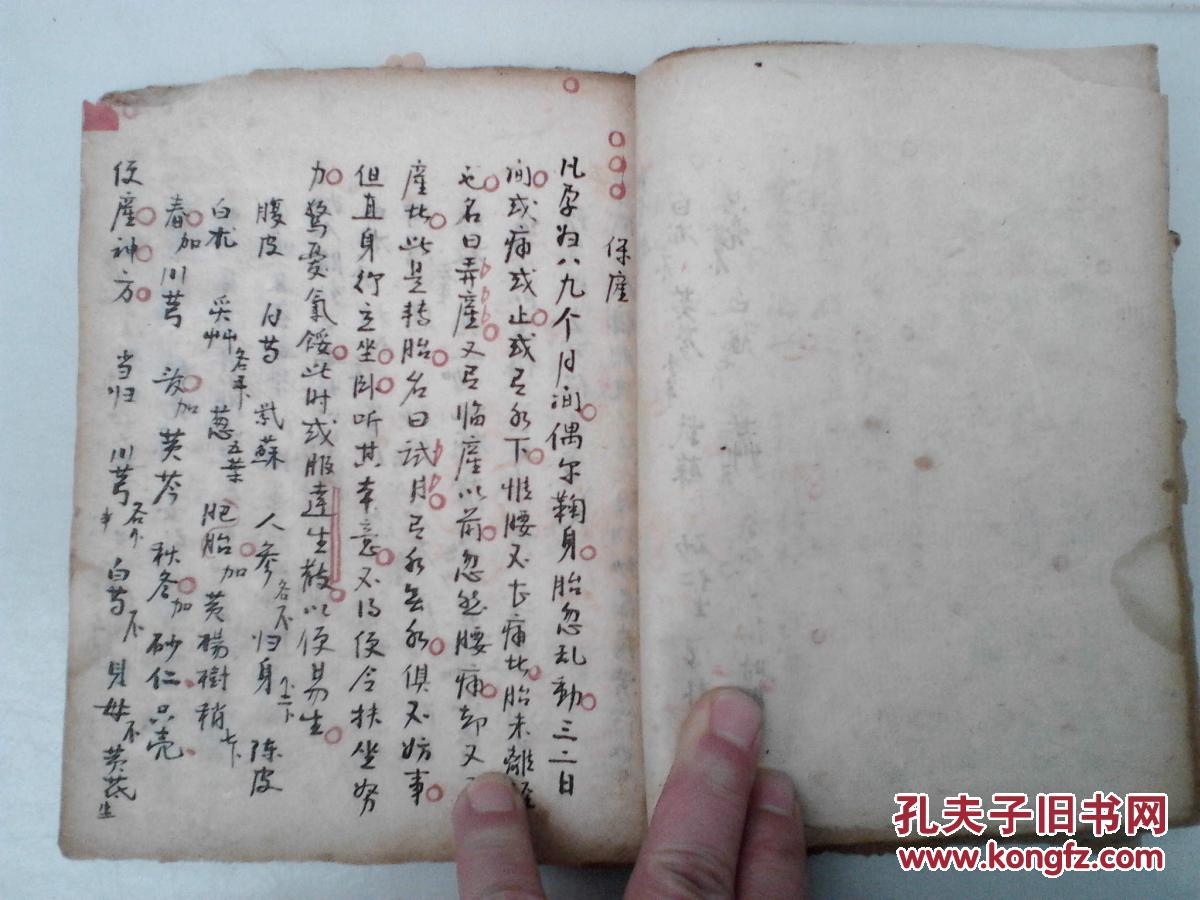 保產
凡孕妇八九个月间偶尔鞠身胎忽乱動三二日
间或痛或止或有水下惟腰不甚痛此胎未離經
也名曰弄產又有临產以前忽然腰痛却又
產此此是转胎名曰试月有水無水俱不妨事
但直身行立坐卧听其本意不得便令扶坐努
力驚憂氣餒此时或服達生散以便易生
腹皮 白芍 紫蘇 人參 各 归身 陈皮
白朮 炙艸 各 葱 五葉 肥胎加 黄楊樹稍 七个
春加川芎 夏加黄芩 秋冬加砂仁 只壳
便產神方 当归 川芎 各 白芍 貝母 黄芪 生
孔夫子旧书网
www.kongfz.com